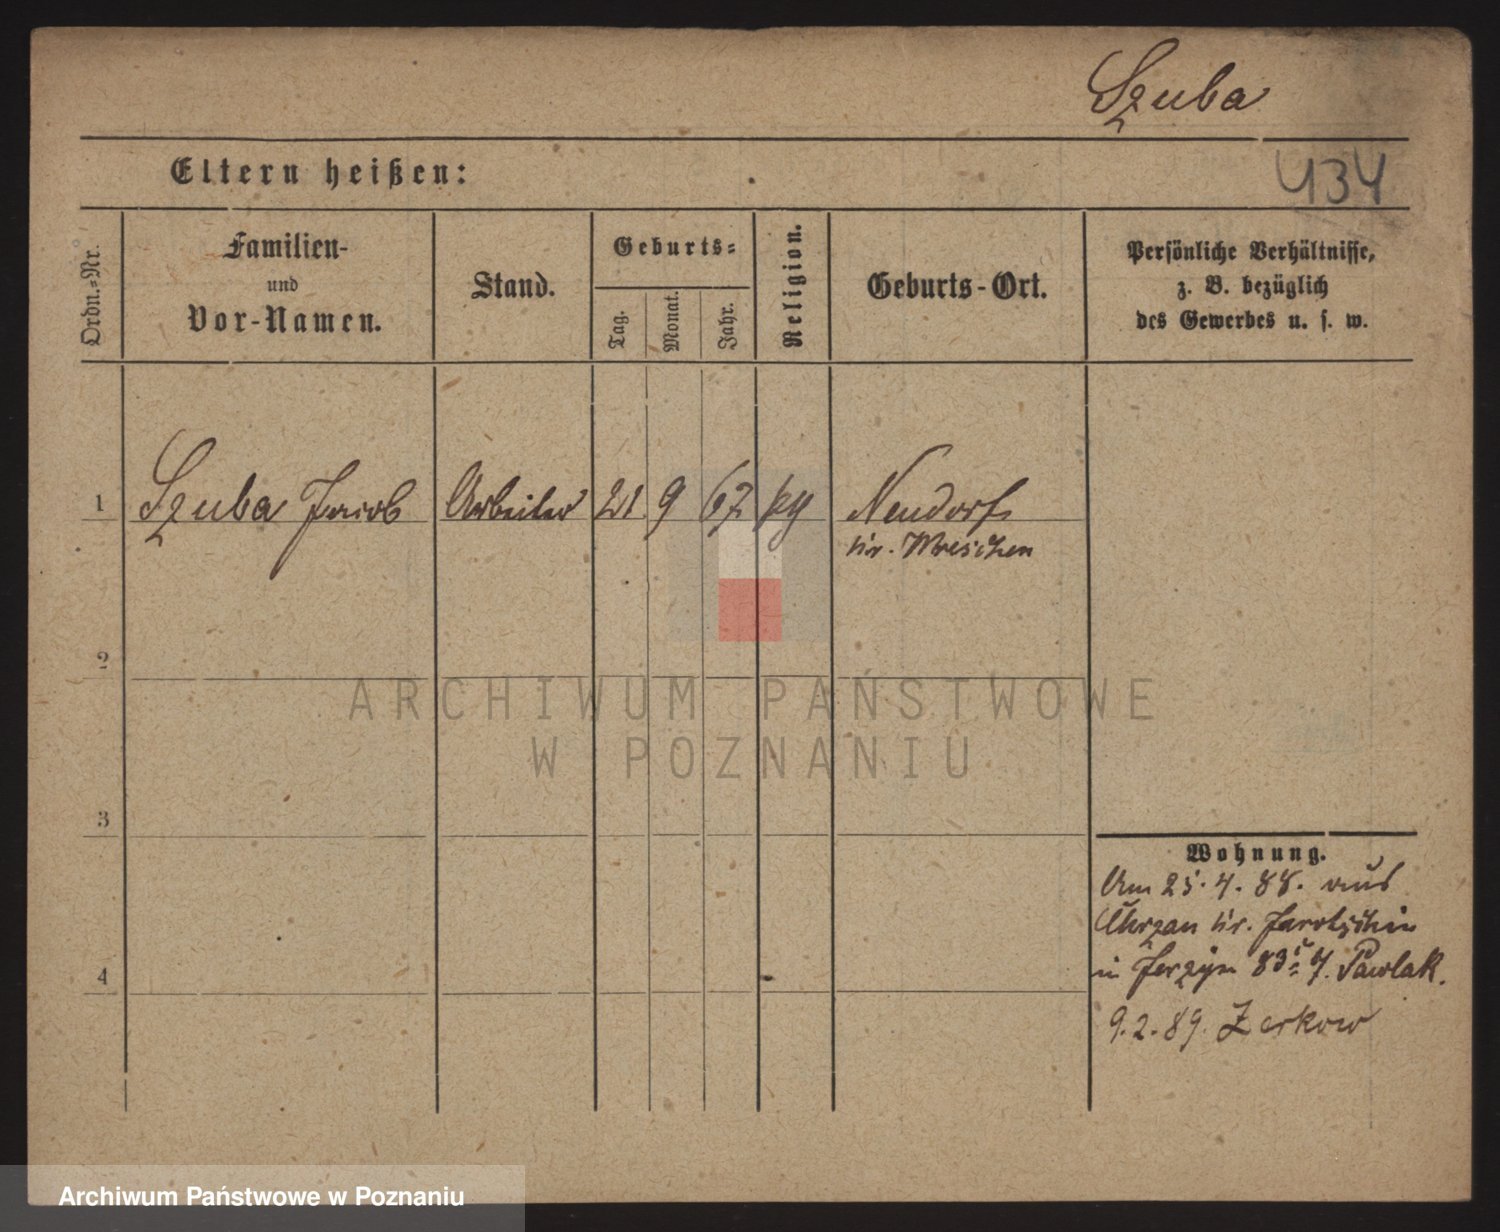 Szuba
Eltern heißen:
434
Ordn.-Nr.
Familien-
und
Vor-Namen.
Stand.
Geburts-
Tag.
Monat.
Jahr.
Religion.
Geburts-Ort.
Persönliche Verhältnisse,
z. B. bezüglich
des Gewerbes u. s. w.
1 Szuba Jacob Arbeiter 21 9 67 kg Neudorf
Kr. Wreschen
2
3
4
Wohnung.
Am 25.4.88. aus
Kr. Jarotschin
in Jerzyn 83 Pawlak.
9.2.89. Zerkow
ARCHIWUM PAŃSTWOWE
W POZNANIU
Archiwum Państwowe w Poznaniu